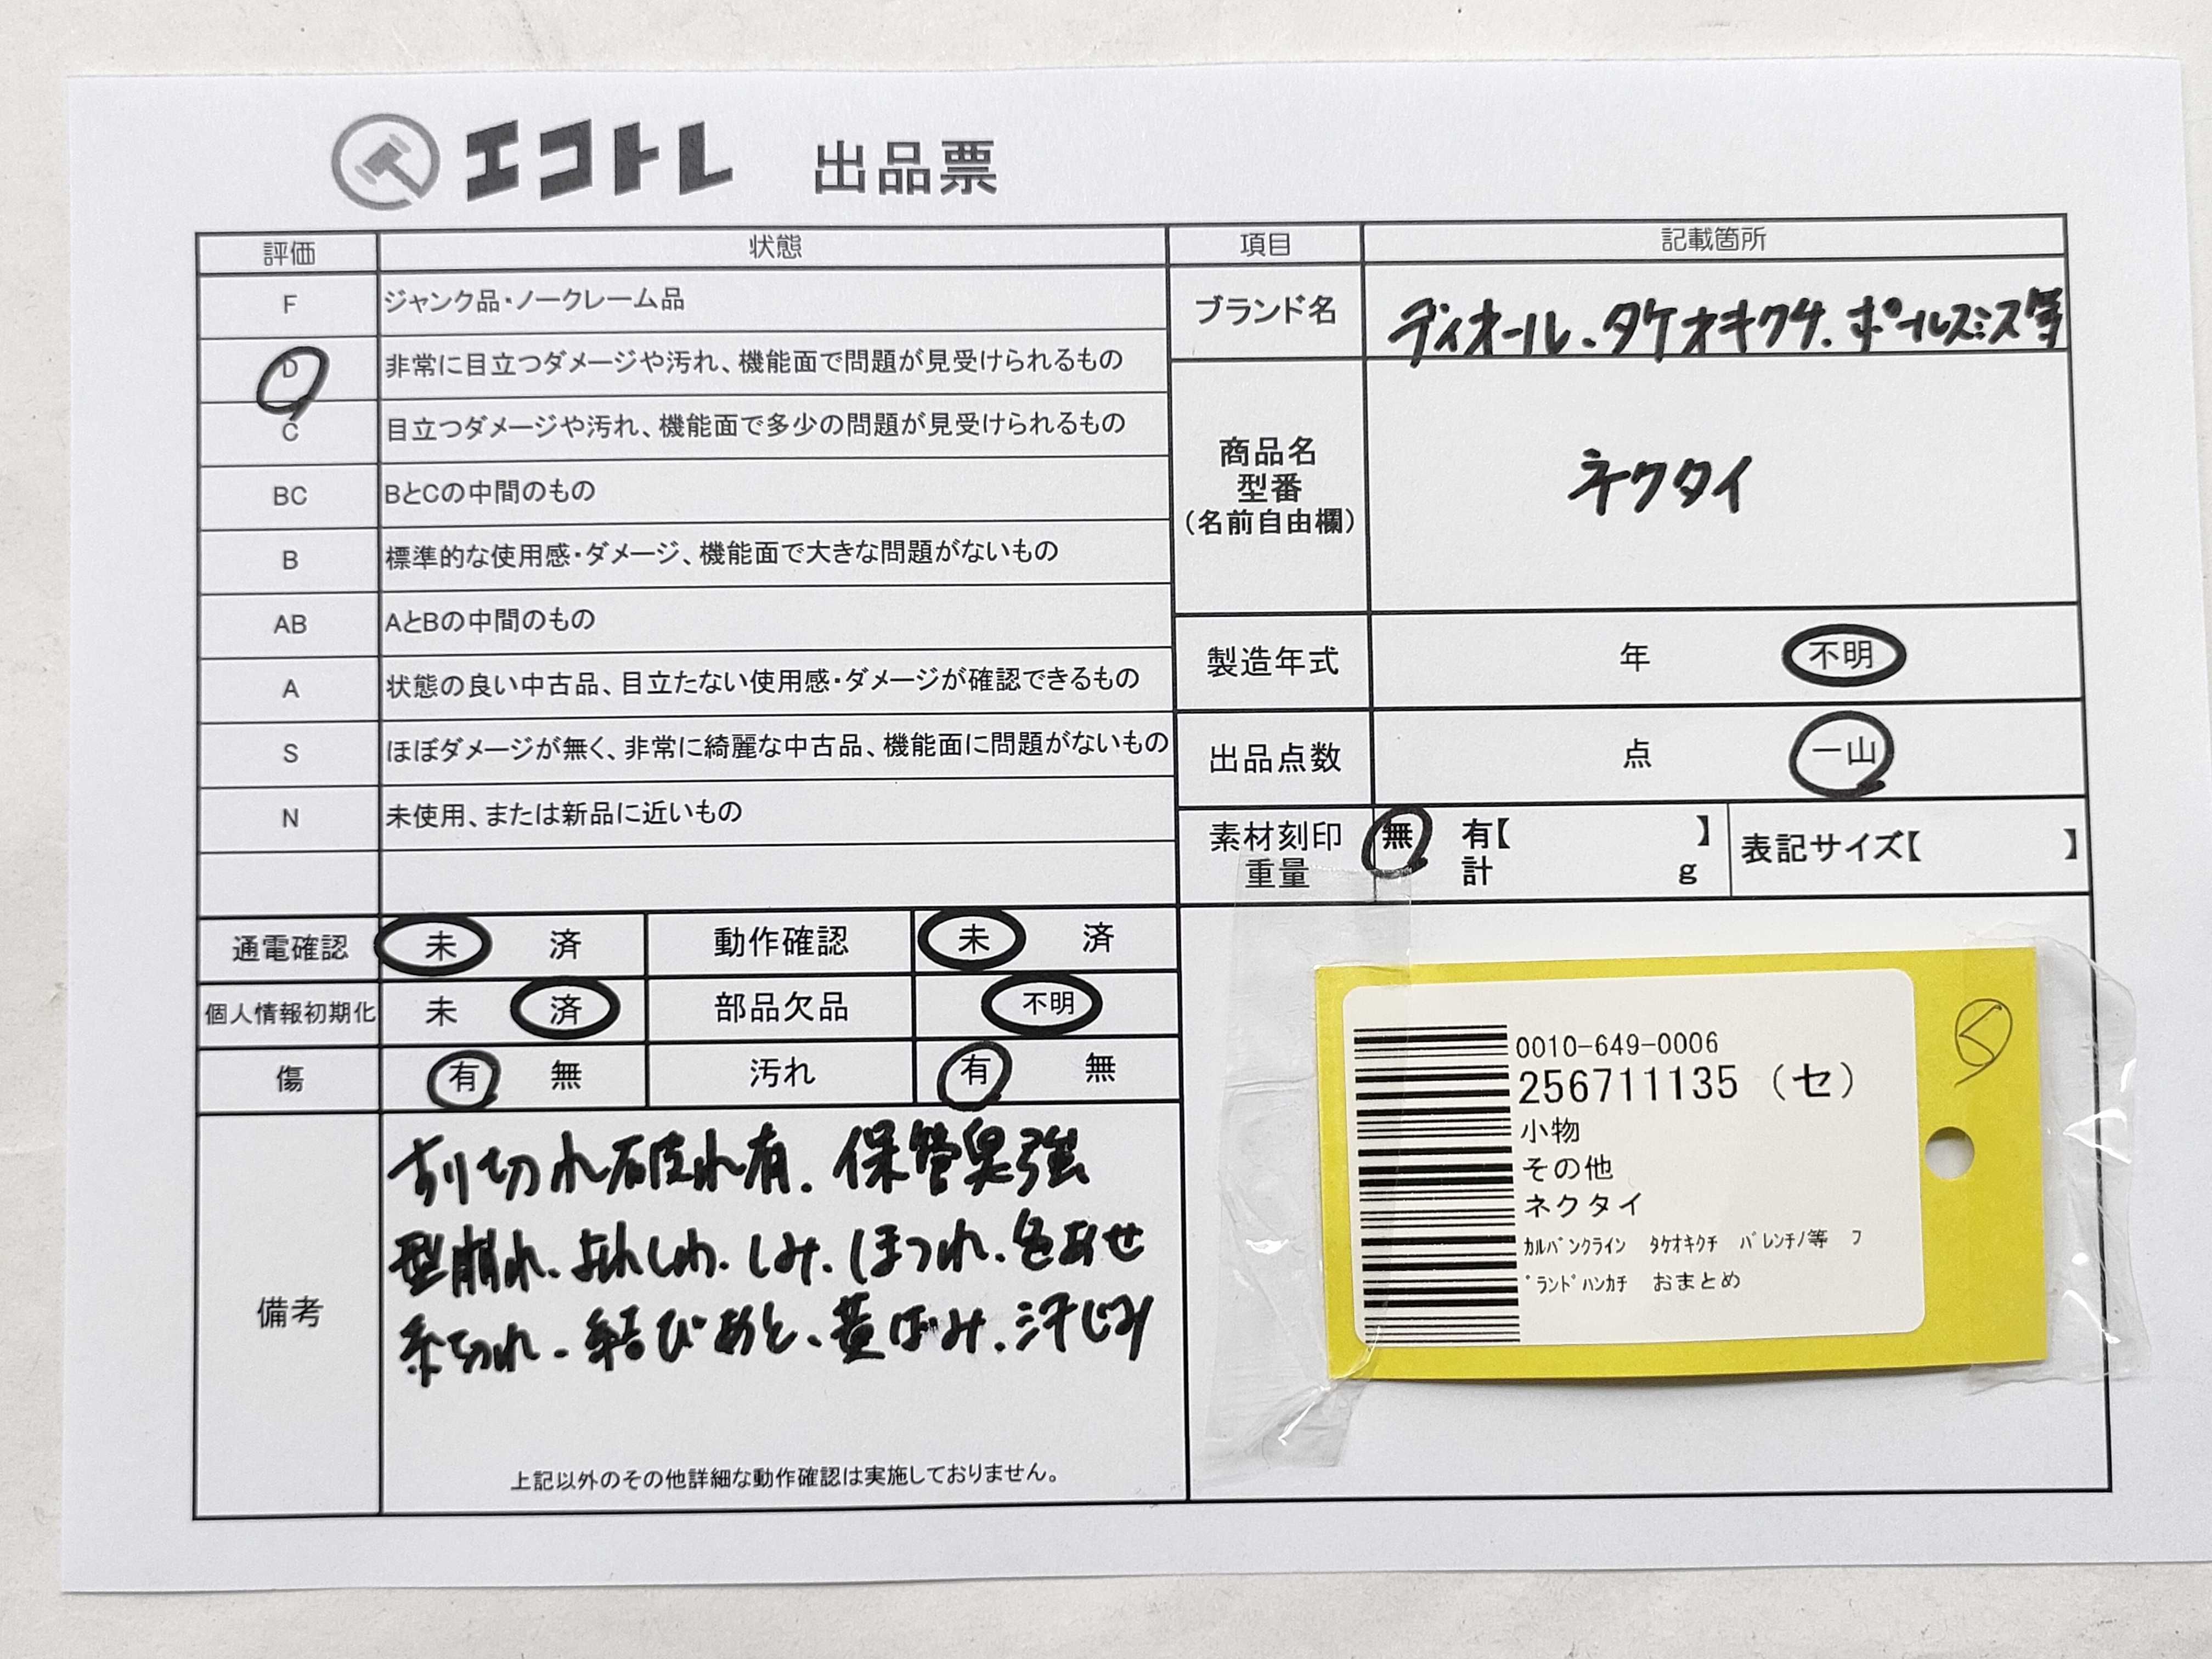 エコトレ 出品票
評価 状態 項目 記載箇所
F ジャンク品・ノークレーム品
D 非常に目立つダメージや汚れ、機能面で問題が見受けられるもの
C 目立つダメージや汚れ、機能面で多少の問題が見受けられるもの
BC BとCの中間のもの
B 標準的な使用感・ダメージ、機能面で大きな問題がないもの
AB AとBの中間のもの
A 状態の良い中古品、目立たない使用感・ダメージが確認できるもの
S ほぼダメージが無く、非常に綺麗な中古品、機能面に問題がないもの
N 未使用、または新品に近いもの
ブランド名 ディオール、タケオキクチ、ポールスミス等
商品名
型番
(名前自由欄)
ネクタイ
製造年式 年 不明
出品点数 点 一山
素材刻印 無 有【 】
重量 計 g
表記サイズ【 】
通電確認 未 済 動作確認 未 済
個人情報初期化 未 済 部品欠品 不明
傷 有 無 汚れ 有 無
備考
切れ破れ有. 保管臭強
型崩れ、よれしわ、しみ、ほつれ、色あせ
糸切れ、結びあと、黄ばみ、汗じみ
上記以外のその他詳細な動作確認は実施しておりません。
0010-649-0006
256711135 (セ)
小物
その他
ネクタイ
ｶﾙﾊﾞﾝｸﾗｲﾝ ﾀｹｵｷｸﾁ ﾊﾞﾚﾝﾁﾉ等 ﾌ
ﾞﾗﾝﾄﾞﾊﾝｶﾁ おまとめ